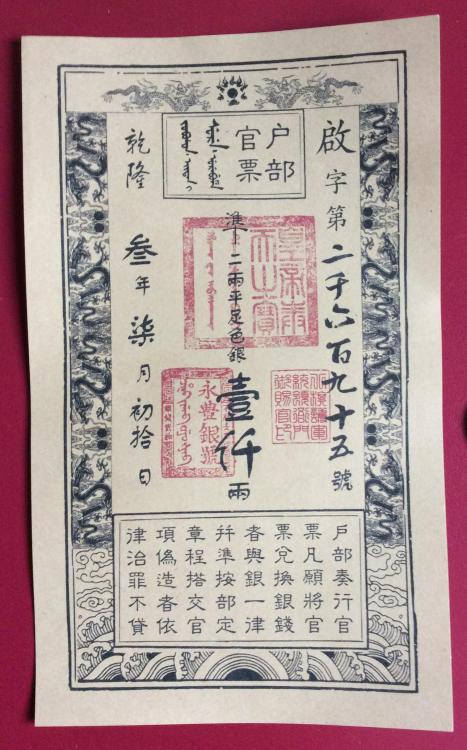 户部
官票
啟字第二千六百九十五號
準二兩平足色銀壹仟兩
乾隆叁年柒月初拾日
皇帝奉
天之寶
永豐銀號
户部奏行官
票凡願將官
票兌換銀錢
者與銀一律
并準按部定
章程搭交官
項偽造者依
律治罪不貸